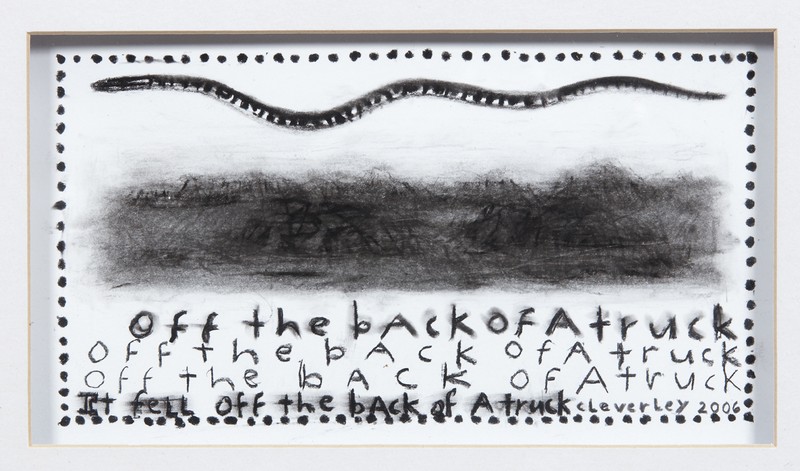 off the bAck of A truck
off the bAck of A truck
off the bAck of A truck
It fell off the bAck of A truck cleverley 2006